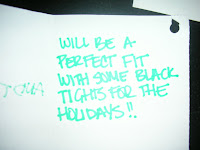 WILL BE A
PERFECT FIT
WITH SOME BLACK
TIGHTS FOR THE
HOLIDAYS!!